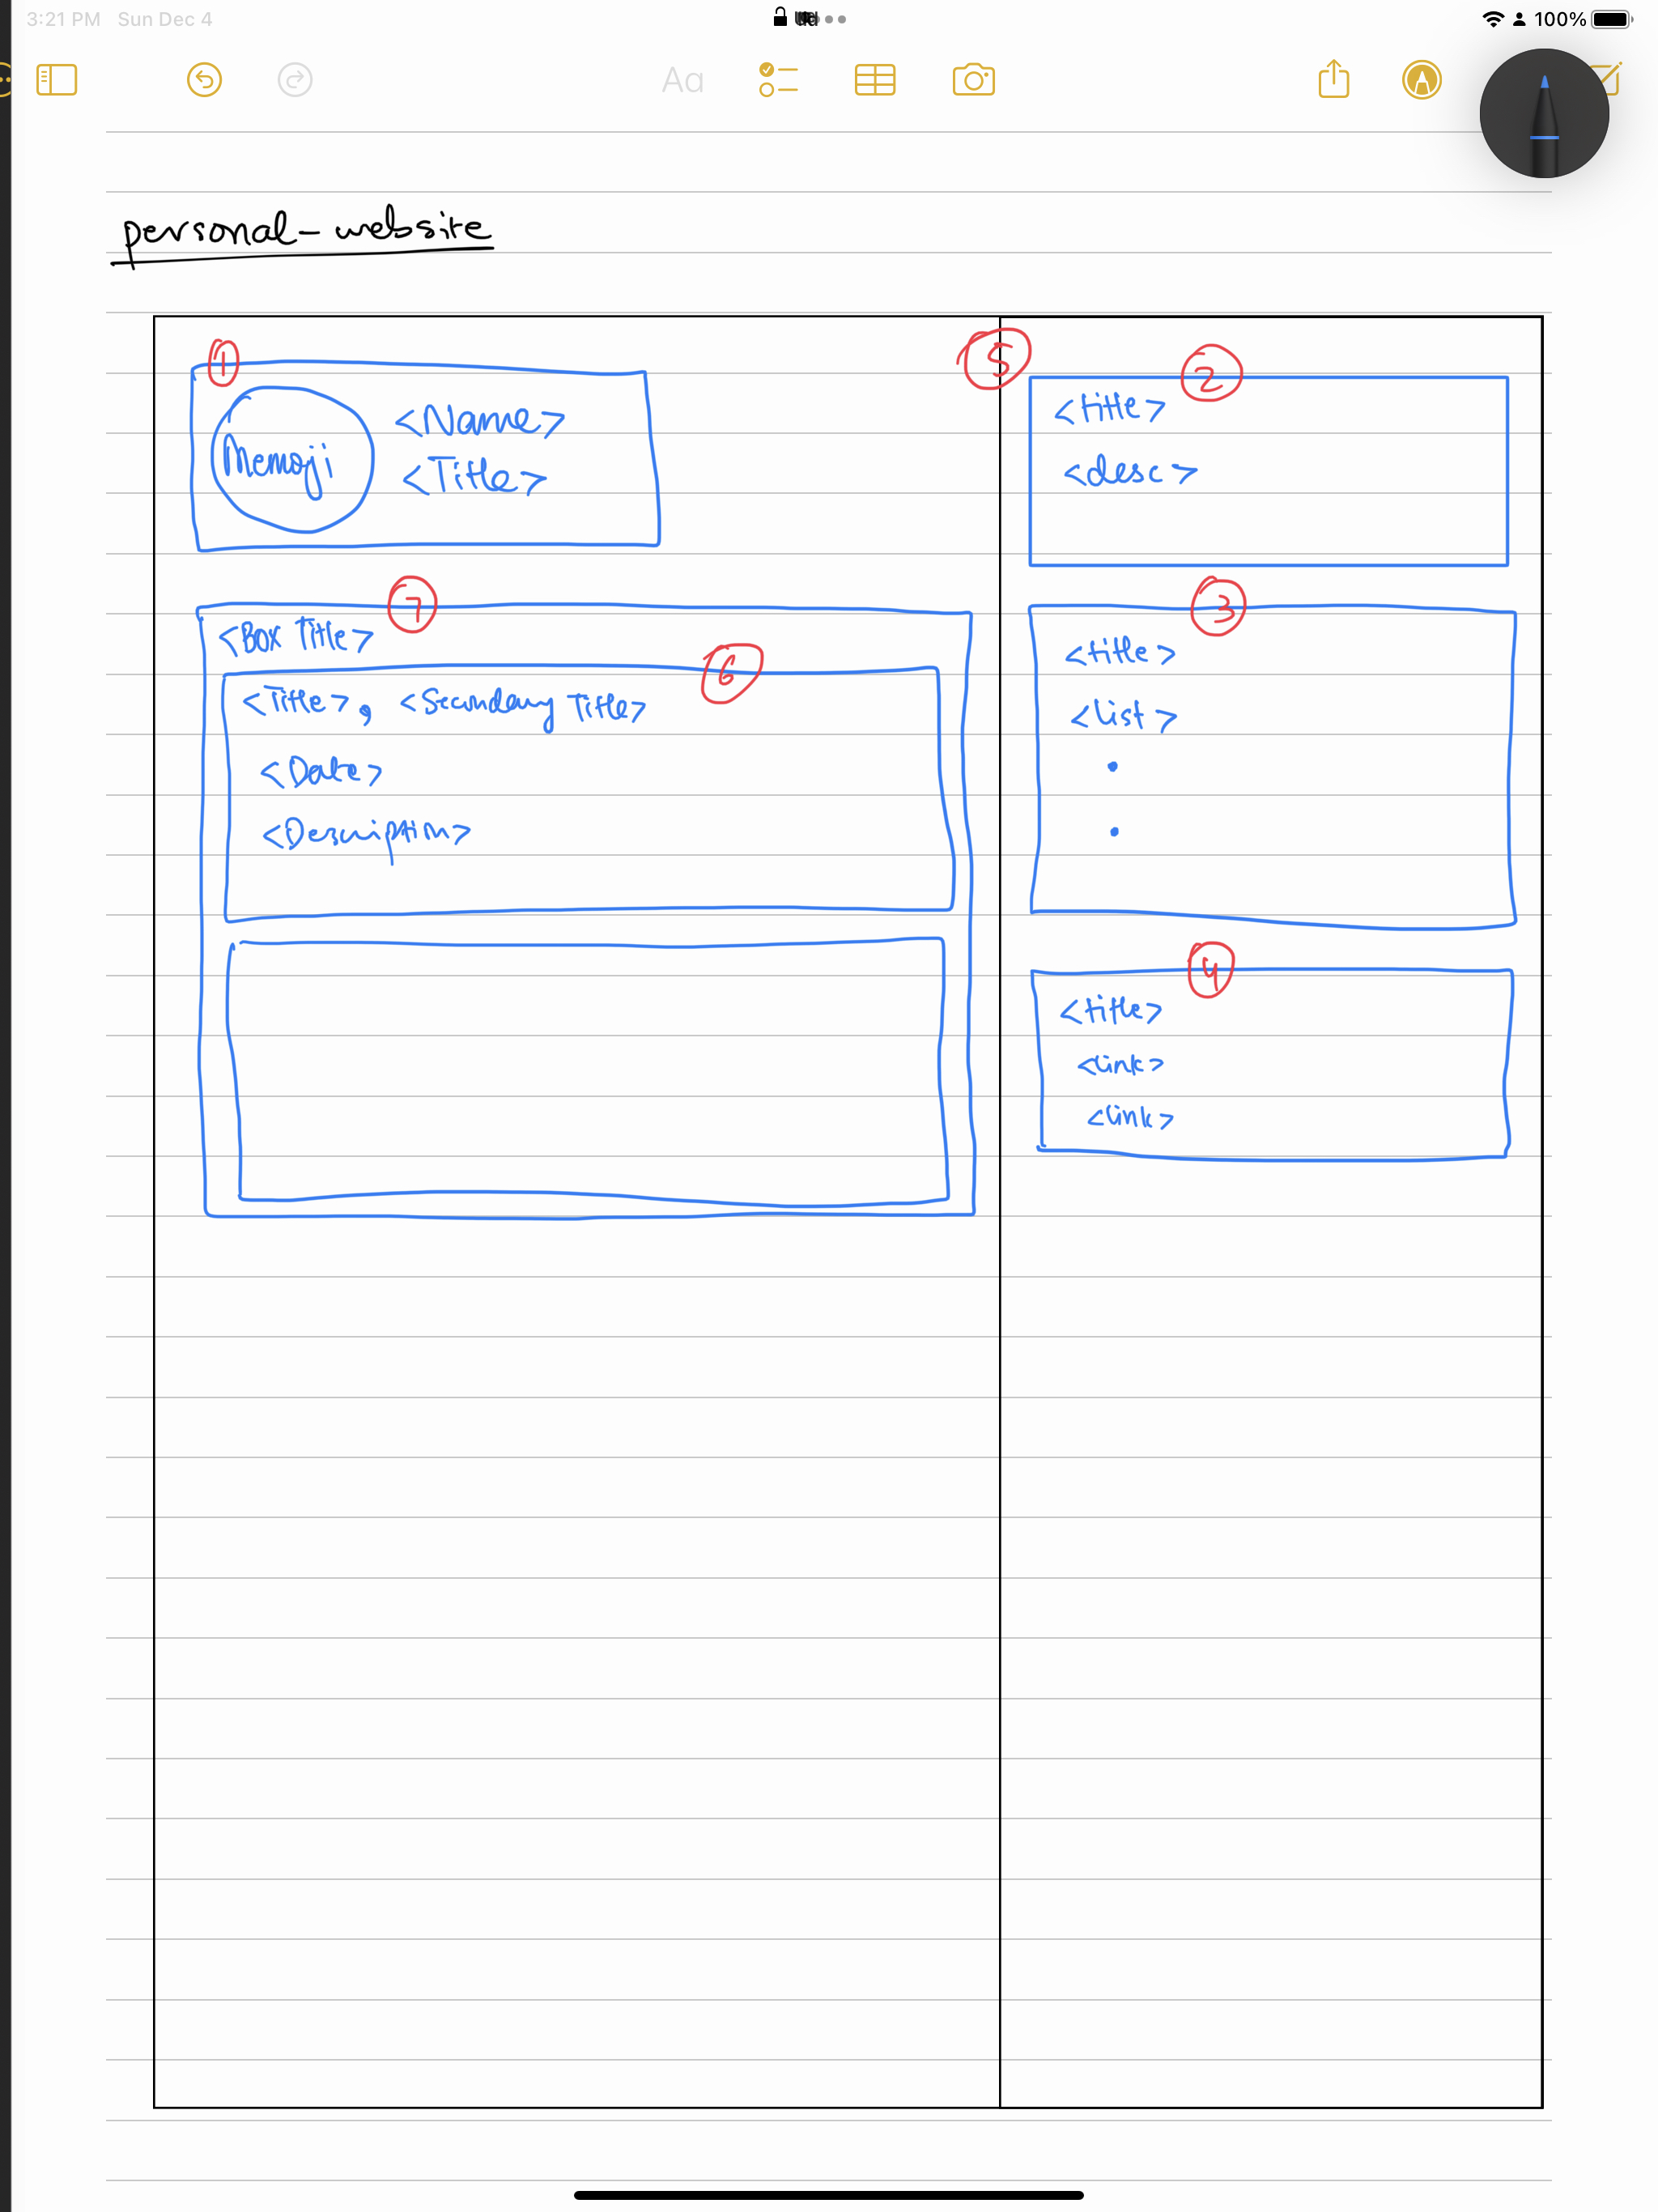 3:21 PM Sun Dec 4
100%
Aa
personal-website
1
Memoji
<Name>
<Title>
5
2
<title>
<desc>
7
<Box Title>
6
<Title>, <Secondary Title>
<Date>
<Description>
3
<title>
<list>
4
<title>
<link>
<link>